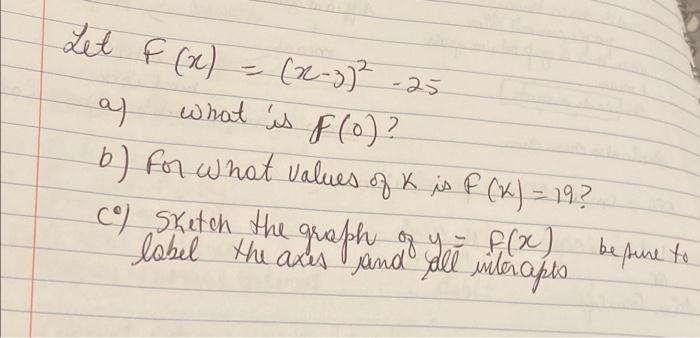 Let F(x) = (x-3)² -25
a) what is F(0)?
b) For what values of x is F(x) = 19?
c) Sketch the graph of y = F(x) be sure to
label the axes and all intercepts